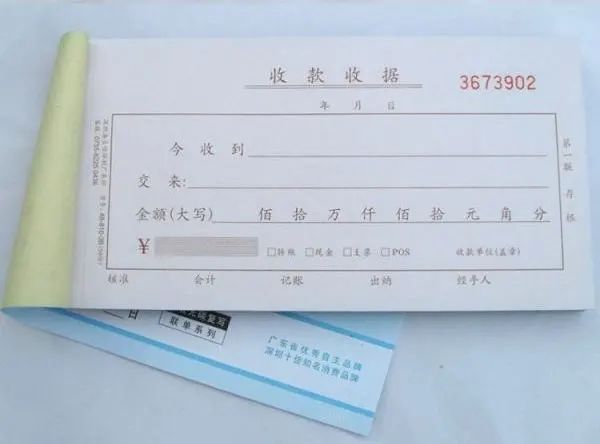 收款收据
3673902
年 月 日
今收到
交来:
金额(大写) 佰 拾 万 仟 佰 拾 元 角 分
¥ □转账 □现金 □支票 □POS 收款单位(盖章)
核准 会计 记账 出纳 经手人
第一联 存根
日
联单系列
广东省优秀自主品牌
深圳十佳知名消费品牌